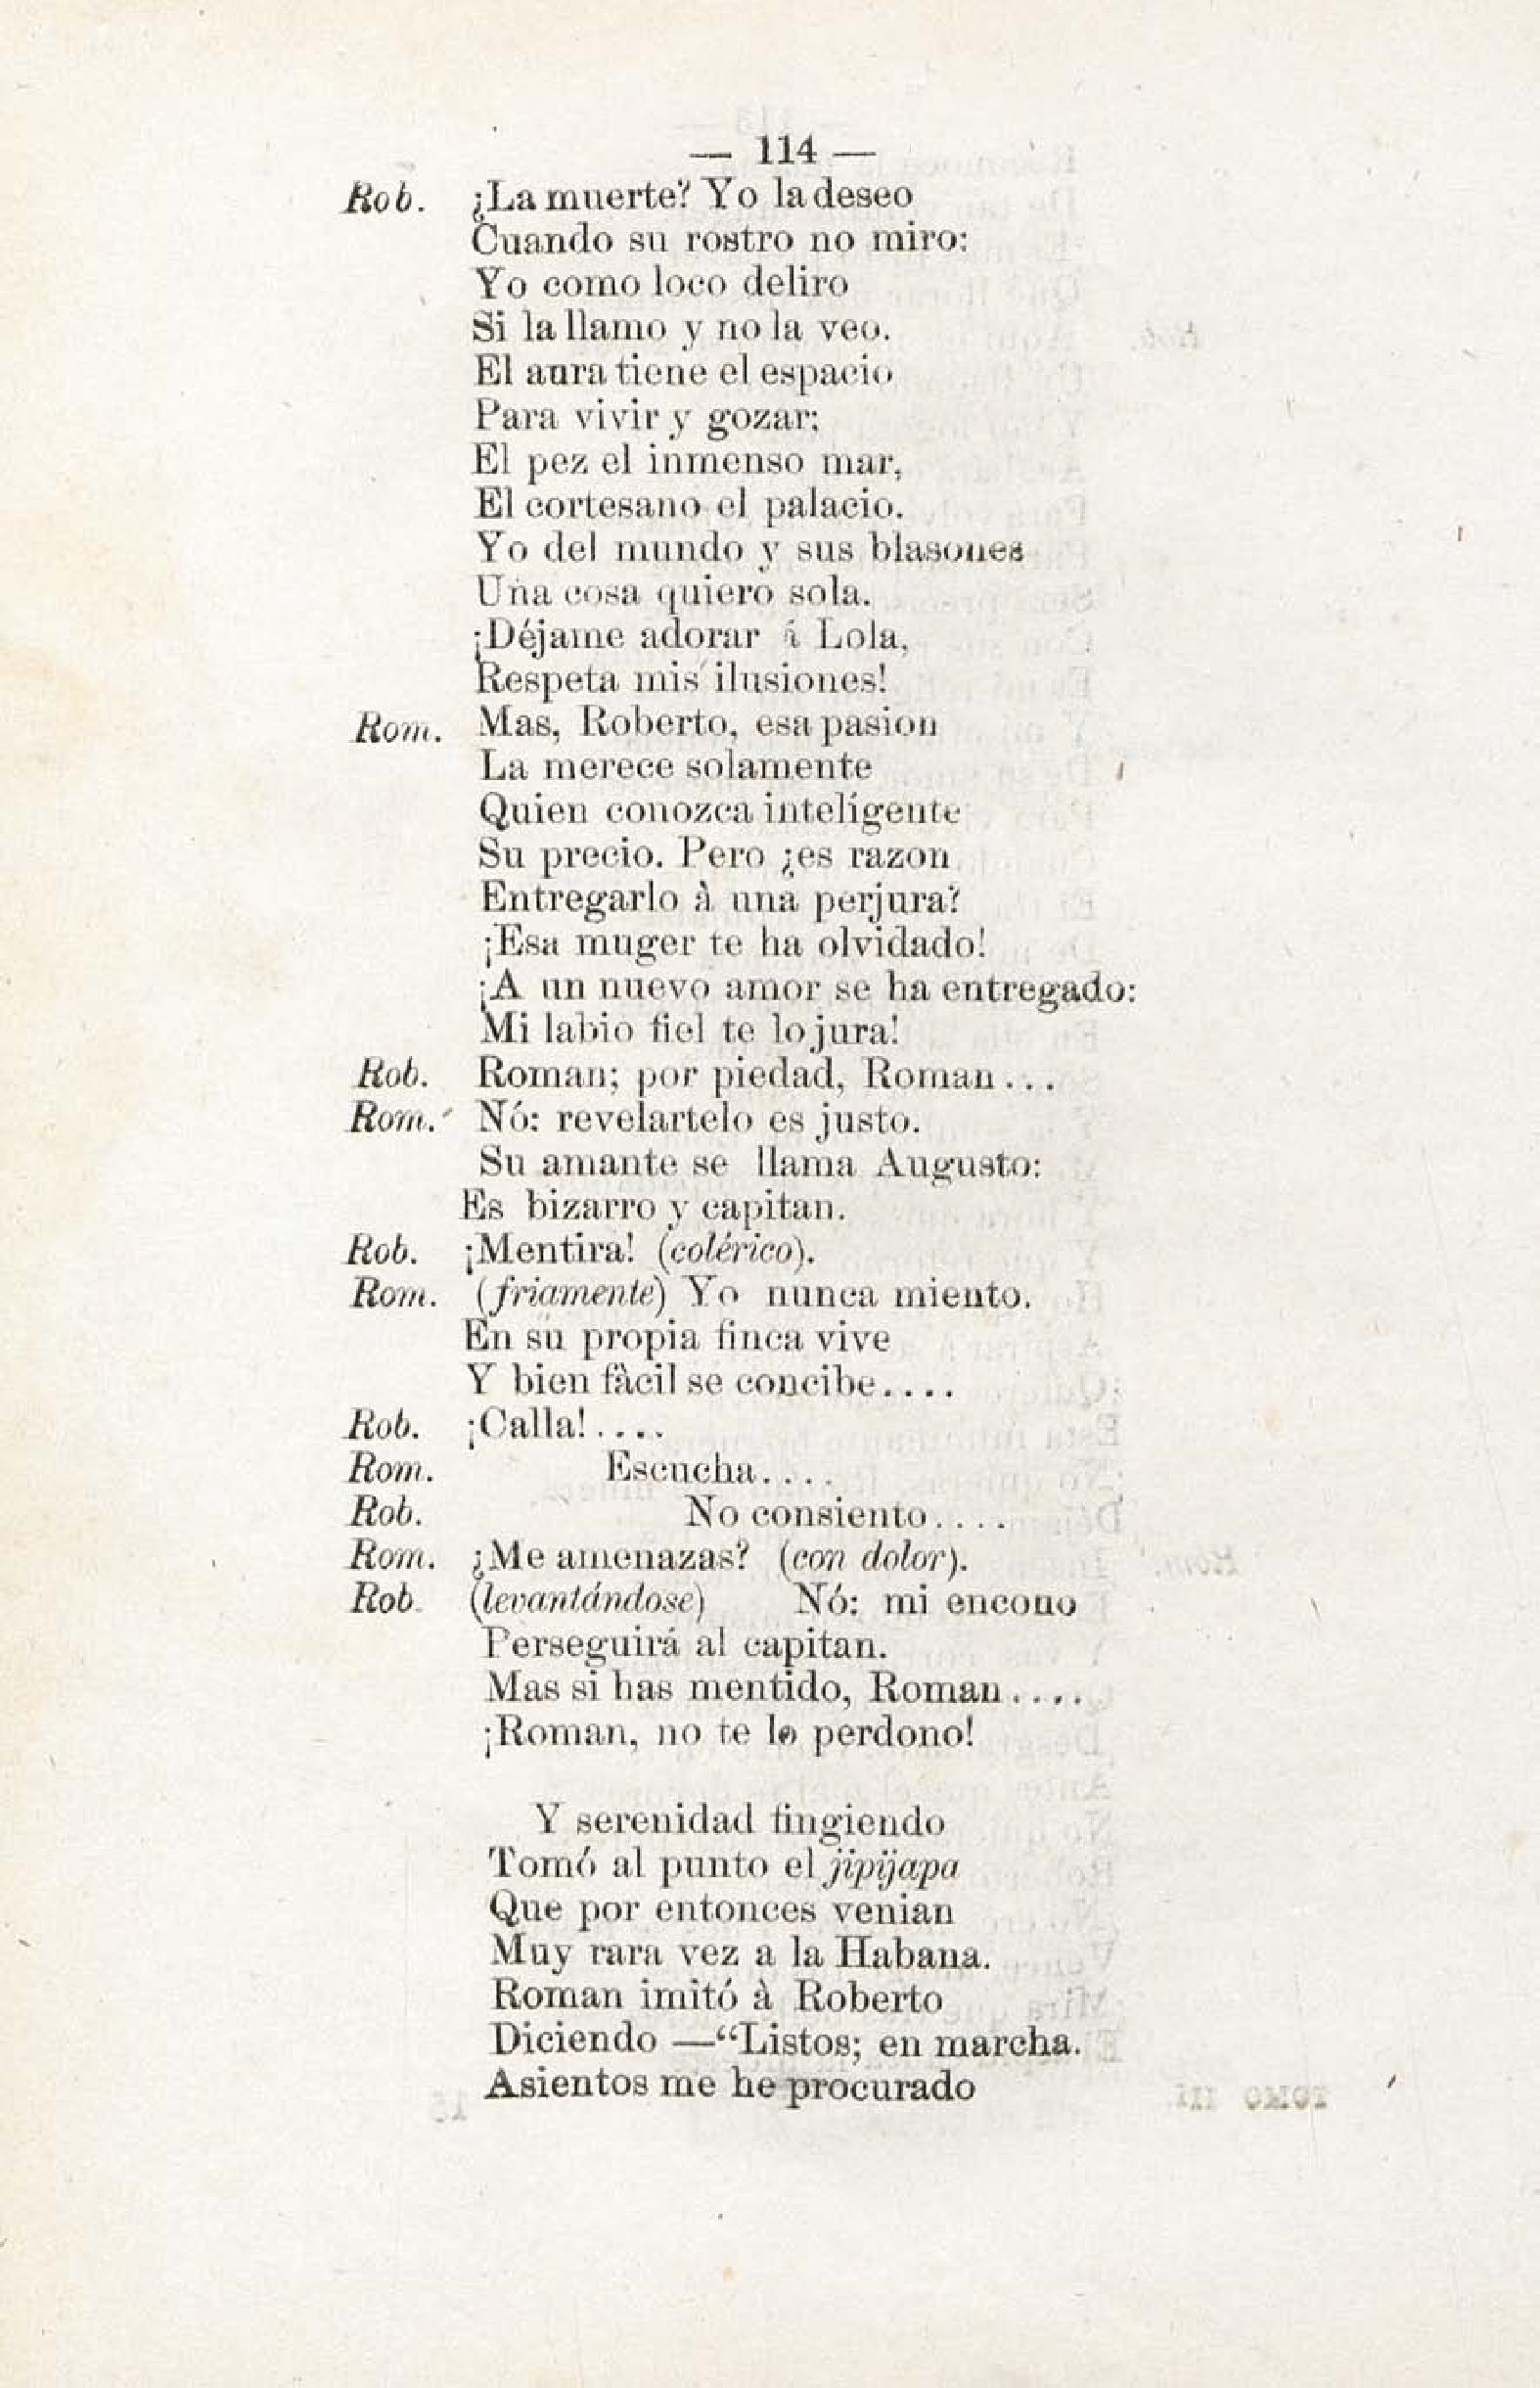 — 114 —
Rob. ¿La muerte? Yo la deseo
Cuando su rostro no miro:
Yo como loco deliro
Si la llamo y no la veo.
El aura tiene el espacio
Para vivir y gozar;
El pez el inmenso mar,
El cortesano el palacio.
Yo del mundo y sus blasones
Una cosa quiero sola.
¡Déjame adorar á Lola,
Respeta mis ilusiones!
Rom. Mas, Roberto, esa pasion
La merece solamente
Quien conozca inteligente
Su precio. Pero ¿es razon
Entregarlo à una perjura?
¡Esa muger te ha olvidado!
¡A un nuevo amor se ha entregado:
Mi labio fiel te lo jura!
Rob. Roman; por piedad, Roman...
Rom. Nó: revelartelo es justo.
Su amante se llama Augusto:
Es bizarro y capitan.
Rob. ¡Mentira! (colérico).
Rom. (friamente) Yo nunca miento.
En su propia finca vive
Y bien fàcil se concibe....
Rob. ¡Calla!....
Rom. Escucha....
Rob. No consiento....
Rom. ¿Me amenazas? (con dolor).
Rob. (levantándose) Nó: mi encono
Perseguirá al capitan.
Mas si has mentido, Roman....
¡Roman, no te lo perdono!
Y serenidad fingiendo
Tomó al punto el jipijapa
Que por entonces venian
Muy rara vez a la Habana.
Roman imitó à Roberto
Diciendo —“Listos; en marcha.
Asientos me he procurado